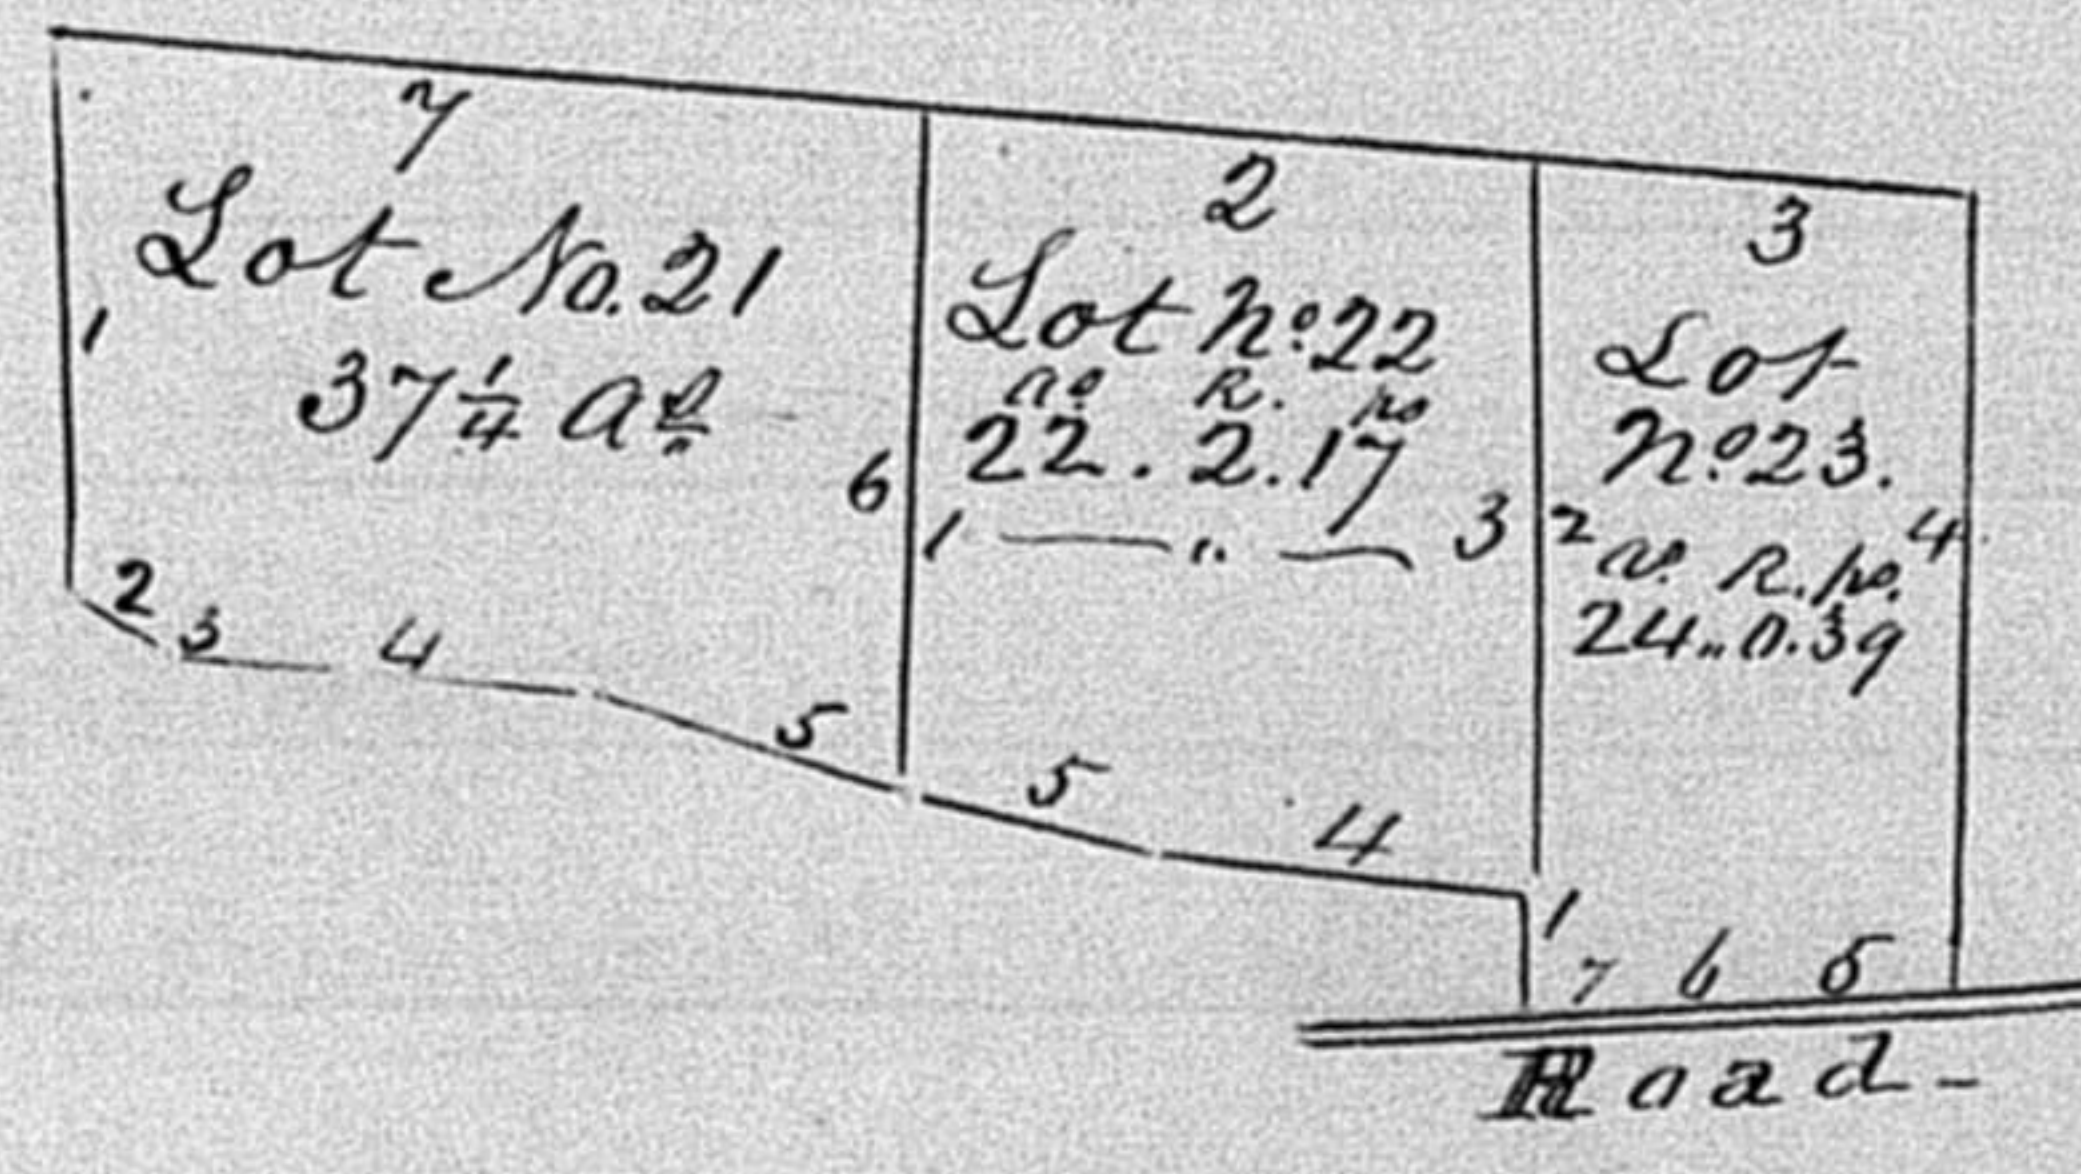 7
Lot No. 21
37 1/4 As
1
2
3
4
5
6
2
Lot No. 22
As R. ps
22. 2. 17
1
3
5
4
3
Lot
No. 23.
2
4
A. R. ps.
24 „ 0. 39
1
7 6 5
Road -